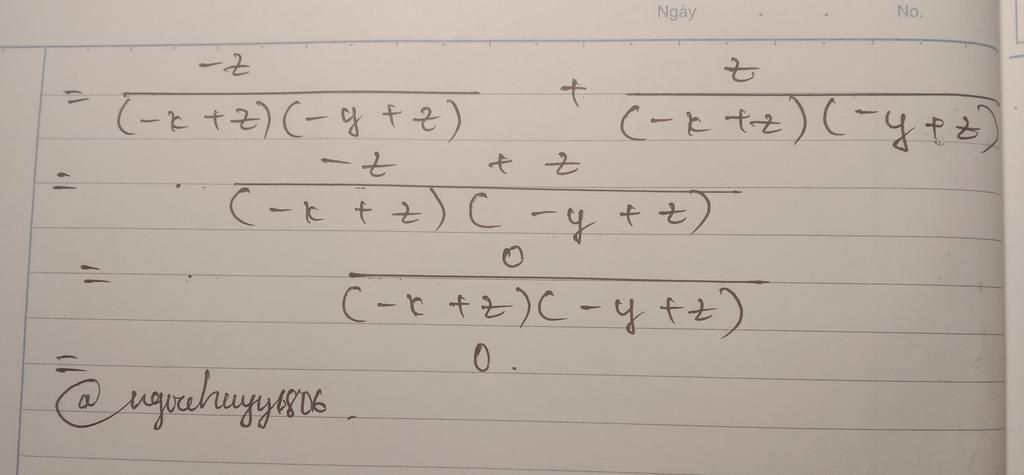 Ngày No.
= -z / (-x + z)(-y + z) + z / (-x + z)(-y + z)
= -z + z / (-x + z)(-y + z)
= 0 / (-x + z)(-y + z)
= 0.
@ngochuyy1806